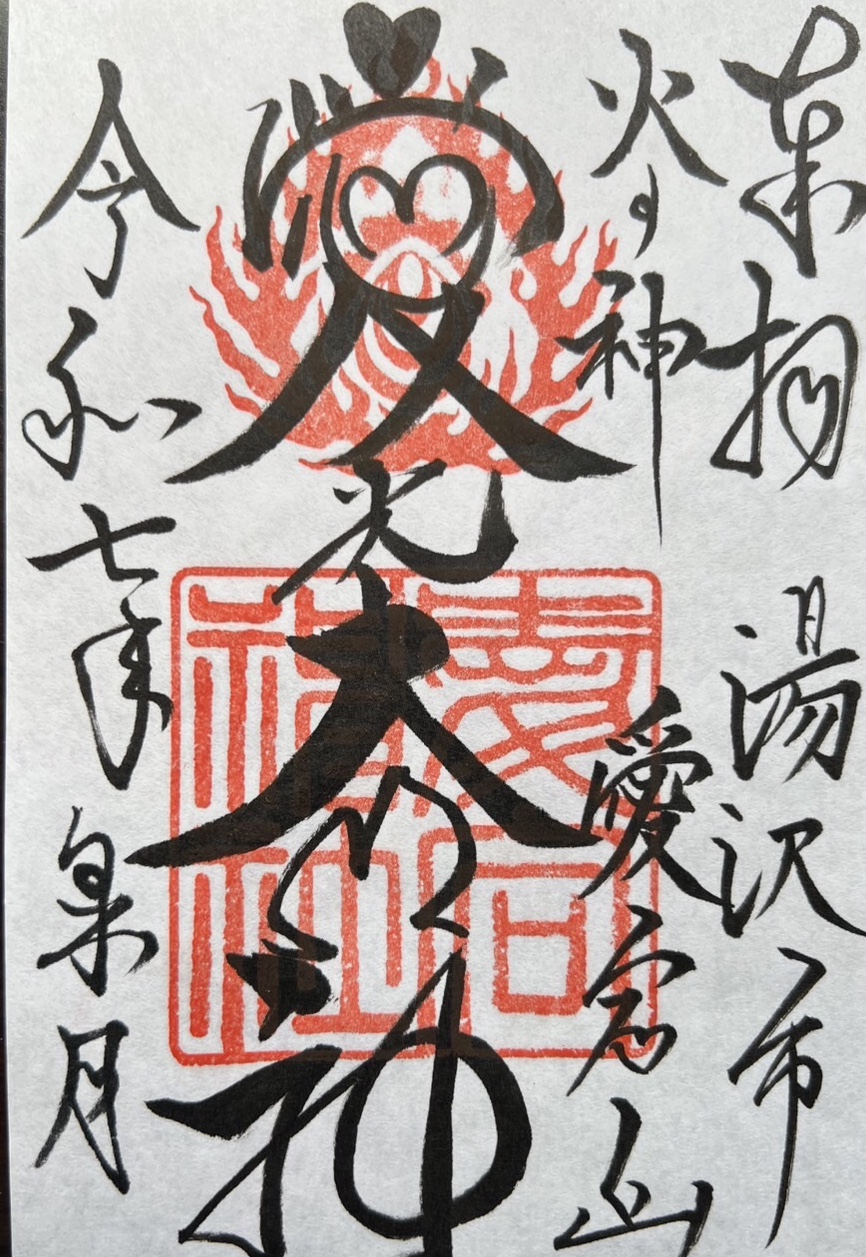 奉拝 湯沢市
火の神 愛宕山
愛光大神
令和七年 皐月
愛宕神社